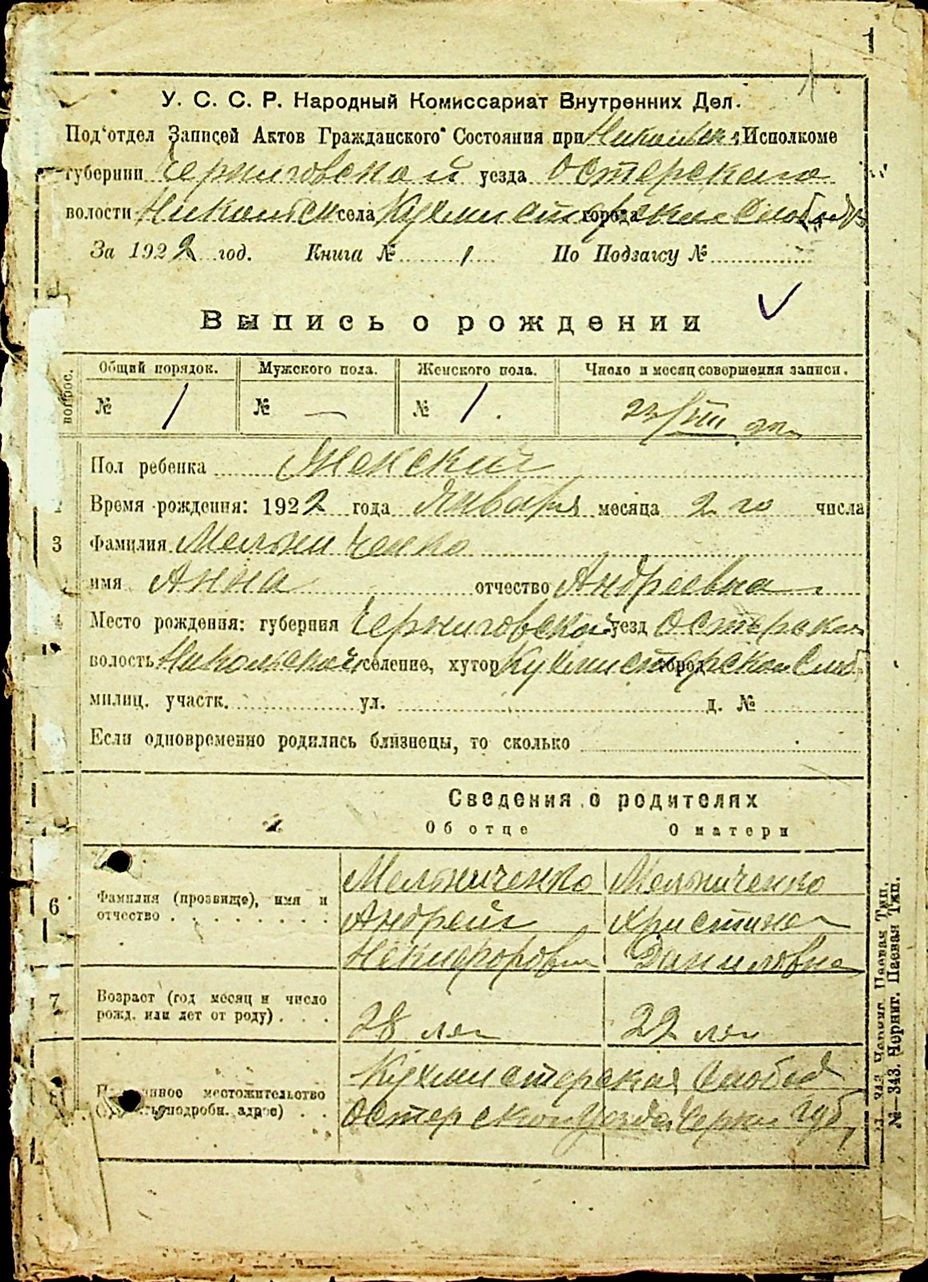 1
У. С. С. Р. Народный Комиссариат Внутренних Дел.
Под‘отдел Записей Актов Гражданского Состояния при Никольск. Исполкоме
губернии Черниговской уезда Остерского
волости Никольск села Кухмистерская города Слобода
За 1922 год. Книга № 1 По Подзагсу №
Выпись о рождении
вопрос. Общий порядок. Мужского пола. Женского пола. Число и месяц совершения записи.
№ 1 № — № 1. 23/VIII
Пол ребенка Женский
Время рождения: 1922 года Января месяца 2 го числа
3 Фамилия Мельниченко
имя Анна отчество Андреевна
4 Место рождения: губерния Черниговская уезд Остерский
волость Никольская селение, хутор Кухмистерская город Слоб.
милиц. участк. ул. д. №
Если одновременно родились близнецы, то сколько
Сведения о родителях
Об отце О матери
6 Фамилия (прозвище), имя и отчество
Мельниченко Мельниченко
Андрей Христина
Никифорович Даниловна
7 Возраст (год месяц и число рожд. или лет от роду)
28 лет 22 лет
местожительство
подробн. адрес)
Кухмистерская Слобода
Остерского Уезда Черниг губ
№ — 343. Черниг. Паевая Тип.